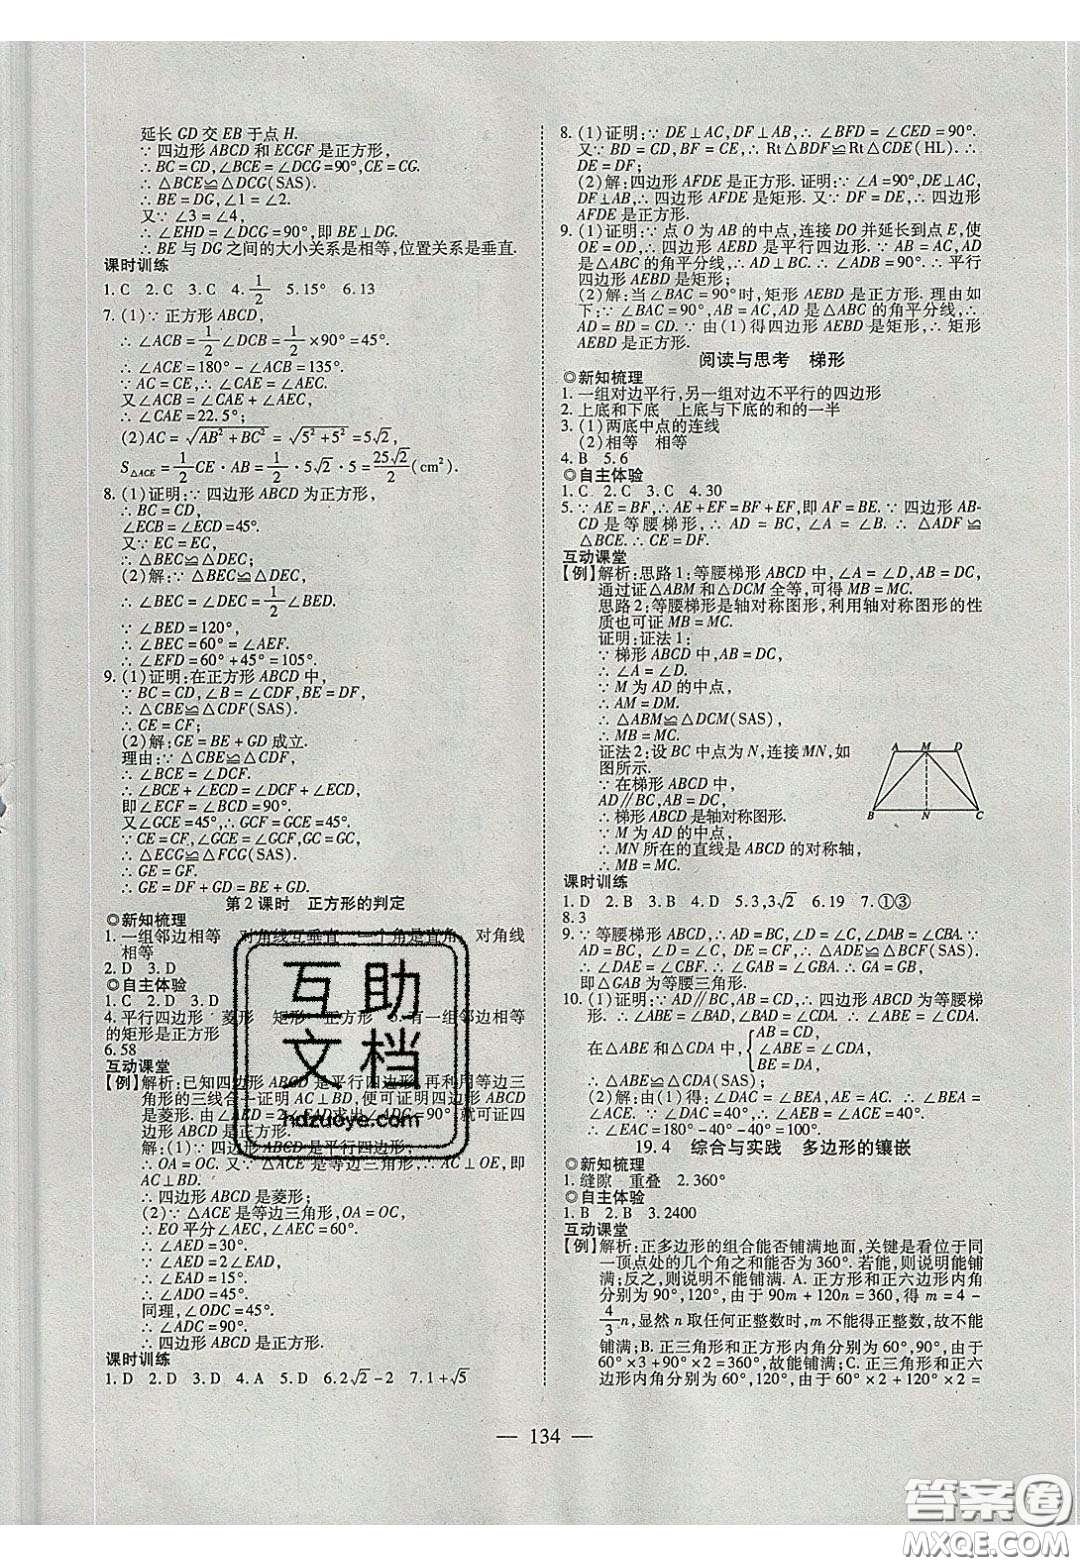 延长 GD 交 EB 于点 H.
∵ 四边形 ABCD 和 ECGF 是正方形,
∴ BC = CD,∠BCE = ∠DCG = 90°,CE = CG.
∴ △BCE≌△DCG(SAS).
∴ BE = DG,∠1 = ∠2.
又∵ ∠3 = ∠4,
∴ ∠EHD = ∠DCG = 90°,即 BE⊥DG.
∴ BE 与 DG 之间的大小关系是相等,位置关系是垂直.
课时训练
1. C 2. C 3. C 4. 1/2 5. 15° 6. 13
7. (1)∵ 正方形 ABCD,
∴ ∠ACB = 1/2∠DCB = 1/2 ×90° = 45°.
∴ ∠ACE = 180° - ∠ACB = 135°.
∵ AC = CE,∴ ∠CAE = ∠CEA.
又∠ACB = ∠CAE + ∠CEA,
∴ ∠CAE = 22.5°;
(2)AC = √(AB² + BC²) = √(5² + 5²) = 5√2,
S△ACE = 1/2 CE · AB = 1/2 · 5√2 · 5 = 25√2/2 (cm²).
8. (1)证明:∵ 四边形 ABCD 为正方形,
∴ BC = CD,
∠ECB = ∠ECD = 45°.
又∵ EC = EC,
∴ △BEC≌△DEC;
(2)解:∵ △BEC≌△DEC,
∴ ∠BEC = ∠DEC = 1/2∠BED.
∵ ∠BED = 120°,
∴ ∠BEC = 60° = ∠AEF.
∴ ∠EFD = 60° + 45° = 105°.
9. (1)证明:在正方形 ABCD 中,
∵ BC = CD,∠B = ∠CDF,BE = DF,
∴ △CBE≌△CDF(SAS).
∴ CE = CF;
(2)解:GE = BE + GD 成立.
理由:∵ △CBE≌△CDF,
∴ ∠BCE = ∠DCF.
∴ ∠BCE + ∠ECD = ∠DCF + ∠ECD,
即∠ECF = ∠BCD = 90°.
又∠GCE = 45°,∴ ∠GCF = ∠GCE = 45°.
∵ CE = CF,∠GCE = ∠GCF,GC = GC,
∴ △ECG≌△FCG(SAS).
∴ GE = GF.
∴ GE = DF + GD = BE + GD.
第 2 课时 正方形的判定
◎新知梳理
1. 一组邻边相等 对角线互垂直 一个角是直角 对角线
相等
2. D 3. D
◎自主体验
1. C 2. D 3. D
4. 平行四边形 菱形 矩形 正方形 5. 有一组邻边相等
的矩形是正方形
6. 58
互动课堂
【例】解析:已知四边形 ABCD 是平行四边形,再利用等边三
角形的三线合一证明 AC⊥BD,便可证明四边形 ABCD
是菱形. 由∠AED = 2∠EAD求出∠ADC = 90°,就可证四
边形 ABCD 是正方形.
解:(1)∵ 四边形 ABCD 是平行四边形,
∴ OA = OC. ∵ △EAC 是等边三角形,∴ AC⊥OE,即
AC⊥BD.
∴ 四边形 ABCD 是菱形;
(2)∵ △ACE 是等边三角形,OA = OC,
∴ EO 平分∠AEC,∠AEC = 60°.
∴ ∠AED = 30°.
∵ ∠AED = 2∠EAD,
∴ ∠ADO = 45°.
同理,∠ODC = 45°.
∴ ∠ADC = 90°.
∴ 四边形 ABCD 是正方形.
课时训练
1. D 2. D 3. D 4. A 5. D 6. 2√2 - 2 7. 1 + √5
8. (1)证明:∵ DE⊥AC,DF⊥AB,∴ ∠BFD = ∠CED = 90°.
又∵ BD = DC,BF = CE,∴ Rt△BDF≌Rt△CDE(HL). ∴
DE = DF;
(2)解:四边形 AFDE 是正方形. 证明:∵ ∠A = 90°,DE⊥AC,
DF⊥AB,∴ 四边形 AFDE 是矩形. 又∵ DF = DE,∴ 四边形
AFDE 是正方形.
9. (1)证明:∵ 点 O 为 AB 的中点,连接 DO 并延长到点 E,使
OE = OD,∴ 四边形 AEBD 是平行四边形. ∵ AB = AC,AD
是△ABC 的角平分线,∴ AD⊥BC. ∴ ∠ADB = 90°. ∴ 平行
四边形 AEBD 是矩形;
(2)解:当∠BAC = 90°时,矩形 AEBD 是正方形. 理由如
下:∵ ∠BAC = 90°,AB = AC,AD 是△ABC 的角平分线,∴
AD = BD = CD. ∵ 由(1)得四边形 AEBD 是矩形,∴ 矩形
AEBD 是正方形.
阅读与思考 梯形
◎新知梳理
1. 一组对边平行,另一组对边不平行的四边形
2. 上底和下底 上底与下底的和的一半
3. (1)两底中点的连线
(2)相等 相等
4. B 5. 6
◎自主体验
1. C 2. C 3. C 4. 30
5. ∵ AE = BF,∴ AE + EF = BF + EF,即 AF = BE. ∵ 四边形 AB-
CD 是等腰梯形,∴ AD = BC,∠A = ∠B. ∴ △ADF ≌
△BCE. ∴ CE = DF.
互动课堂
【例】解析:思路 1:等腰梯形 ABCD 中,∠A = ∠D,
通过证△ABM 和△DCM 全等,可得 MB = MC.
思路 2:等腰梯形是轴对称图形,利用轴对称图形的性
质也可证 MB = MC.
证明:证法 1:
∵ 梯形 ABCD 中,AB = DC,
∴ ∠A = ∠D.
∵ M 为 AD 的中点,
∴ AM = DM.
∴ △ABM≌△DCM(SAS),
∴ MB = MC.
证法 2:设 BC 中点为 N,连接 MN,如
图所示.
∵ 在梯形 ABCD 中,
AD∥BC,AB = DC,
∴ 梯形 ABCD 是轴对称图形.
∵ M 为 AD 的中点,
∴ MN 所在的直线是 ABCD 的对称轴,
∴ MB = MC.
A M D
B N C
课时训练
1. D 2. B 3. B 4. D 5. 3,3√2 6. 19 7. ①③
8. 3
9. ∵ 等腰梯形 ABCD,∴ ∠D = ∠C,∠DAB = ∠CBA. ∵
AD = BC,DE = CF,∠D = ∠C,∴ △ADE≌△BCF(SAS).
∴ ∠DAE = ∠CBF. ∴ ∠GAB = ∠GBA. ∴ GA = GB.
即△GAB 为等腰三角形.
10. (1)证明:∵ AD∥BC,AB = DC,∴ 四边形 ABCD 为等腰梯
形. ∴ ∠BAD = ∠CDA. ∴ ∠ABE = ∠CDA.
在△ABE 和△CDA 中,∵ {AB = CD,
∠ABE = ∠CDA,
BE = DA,
∴ △ABE≌△CDA(SAS);
(2)解:由(1)得:∠AEB = ∠CAD,AE = AC,∴ ∠BEA =
∠ACE. ∵ ∠DAC = 40°,∴ ∠BEA = ∠ACE = 40°.
∴ ∠EAC = 180° - 40° - 40° = 100°.
19.4 综合与实践 多边形的镶嵌
◎新知梳理
1. 缝隙 重叠 2. 360°
◎自主体验
1. B 2. B 3. 2400
互动课堂
【例】解析:正多边形的组合能否铺满地面,关键是看位于同
一顶点处的几个角之和能否为 360°. 若能,则说明能铺
满;反之,则说明不能铺满. A. 正方形和正六边形内角
分别为 90°,120°,由于 90m + 120n = 360,得 m = 4 -
4/3 n,显然 n 取任何正整数时,m 不能得正整数,故不能
铺满;B. 正三角形和正方形内角分别为 60°,90°,由于
60° × 3 + 90° × 2 = 360°,故能铺满;C. 正三角形和正六
边形内角分别为 60°,120°,由于 60° × 2 + 120° × 2 =
— 134 —
互助
文档
hdzuoye.com
答案圈
MXQE.COM